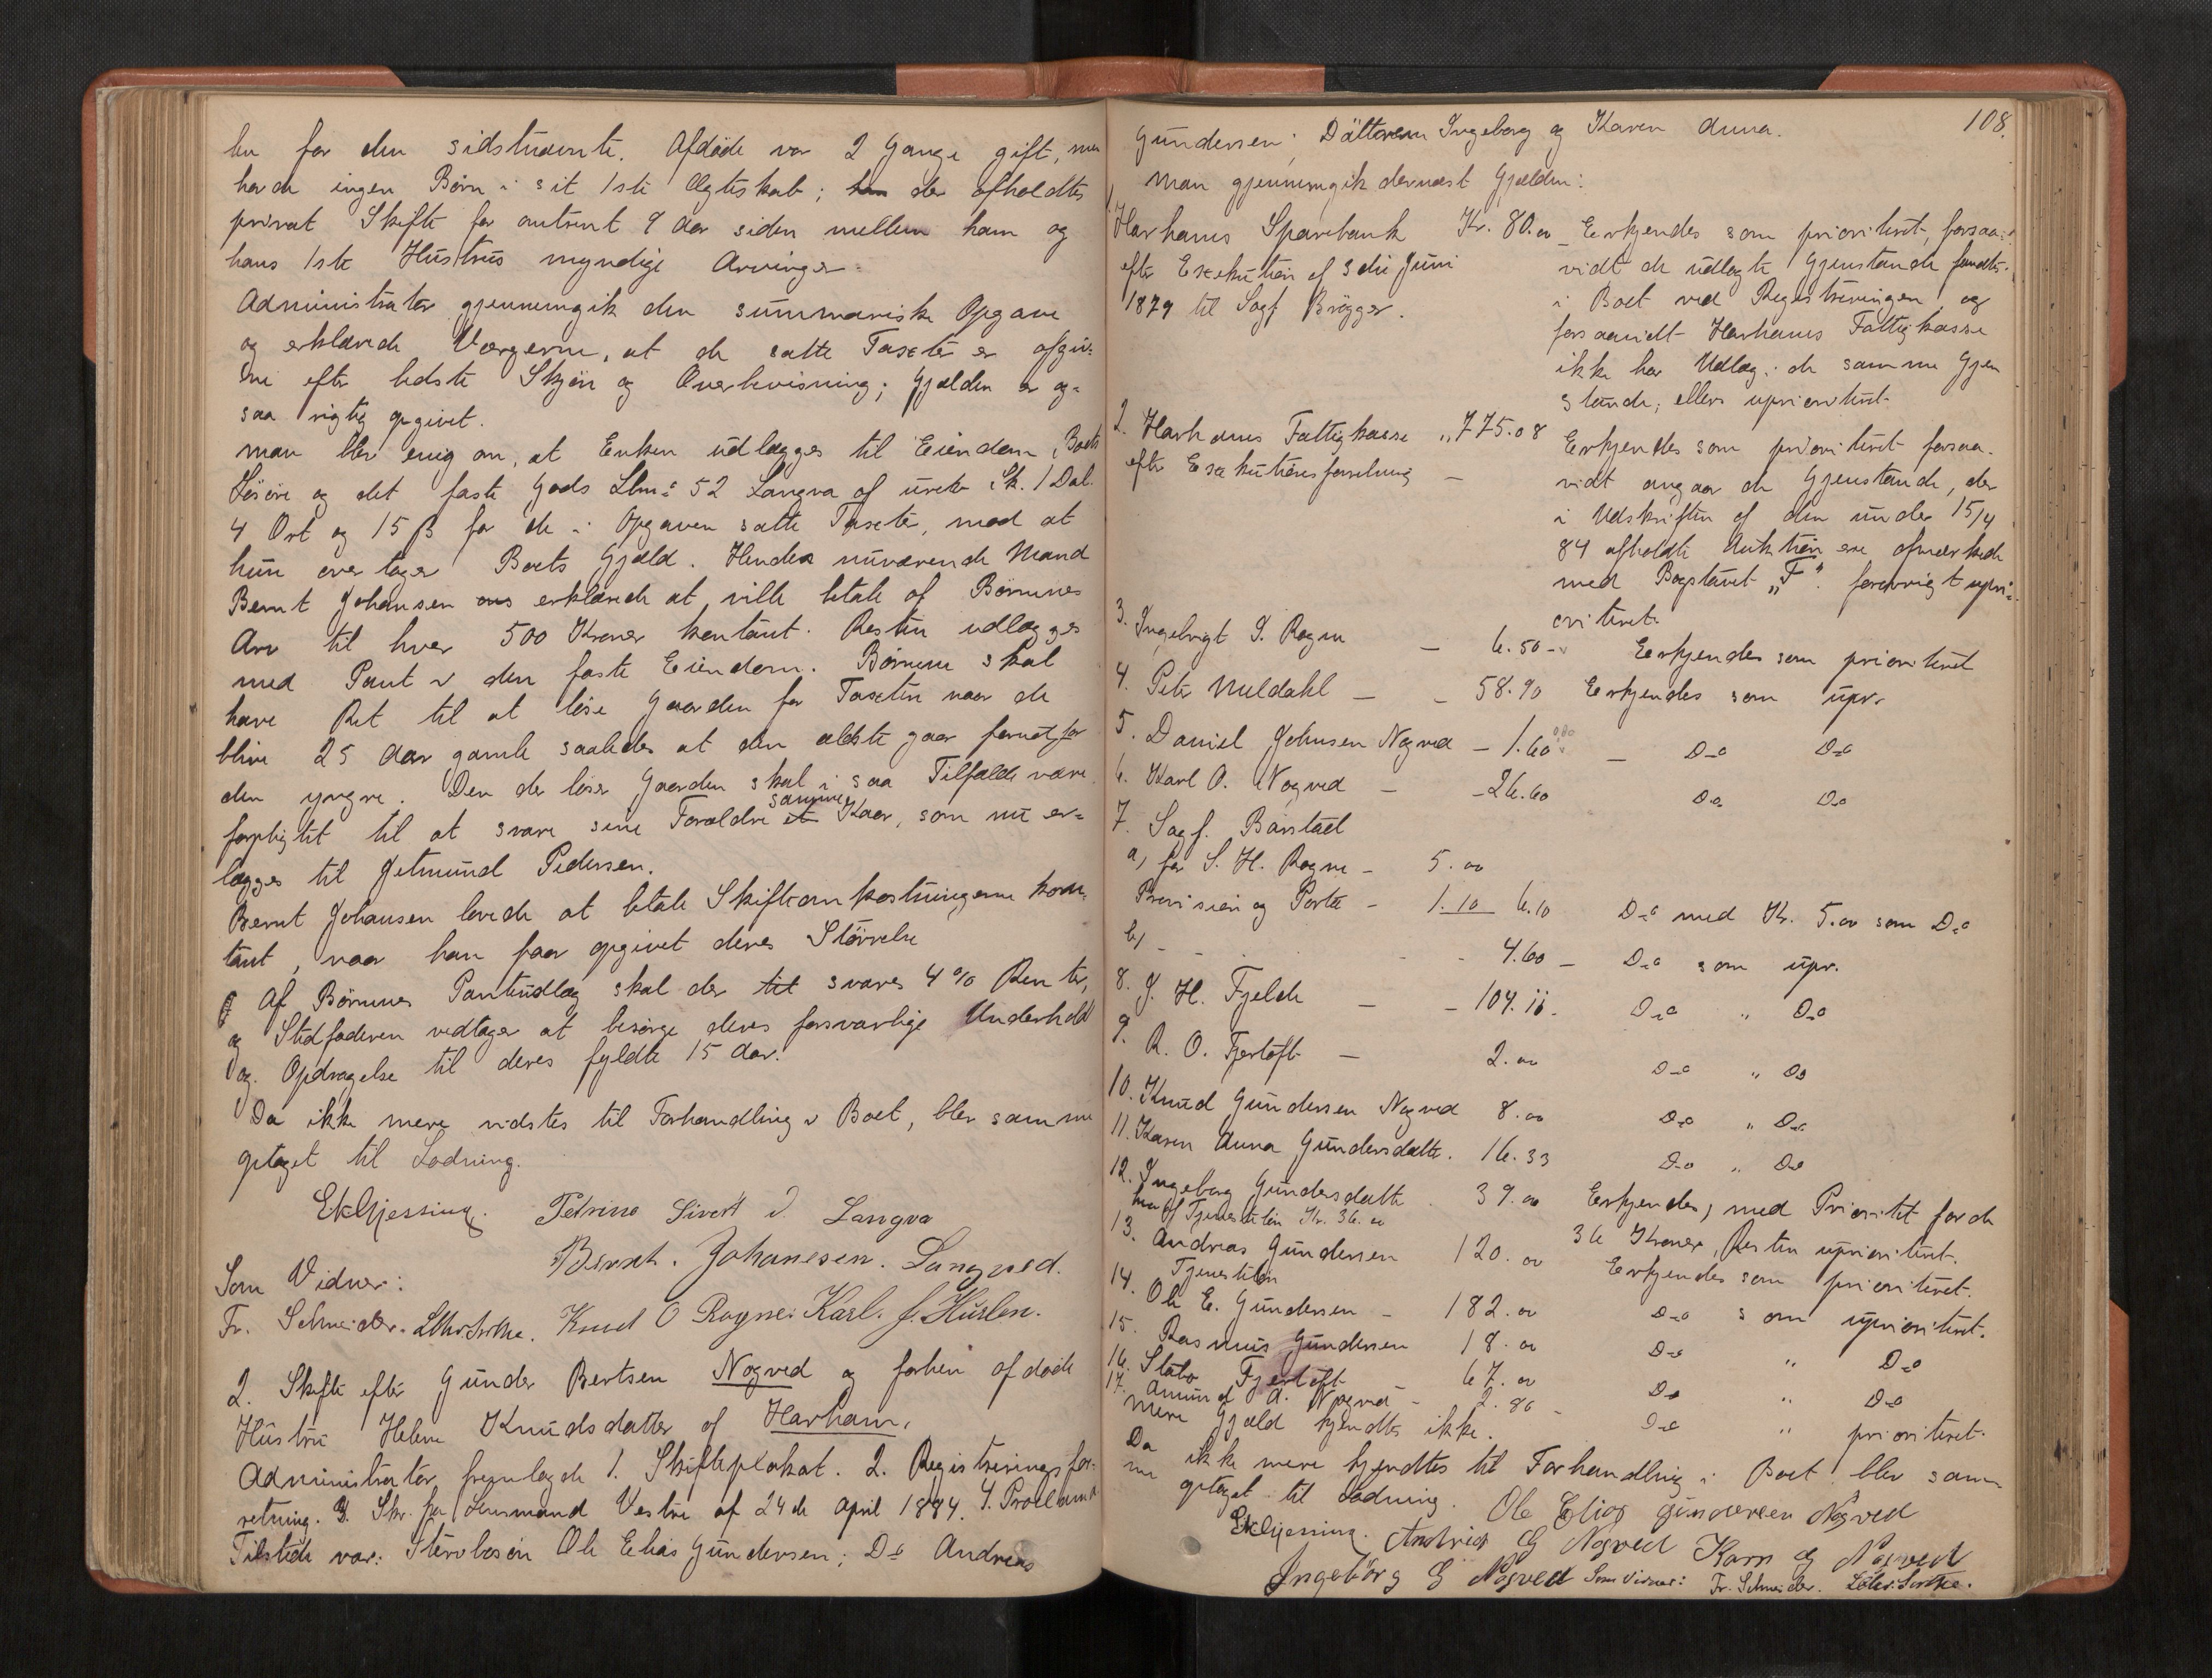 len for den sidstnævnte. Afdøde var 2 Gange gift, men
havde ingen Børn i sit 1ste Ægteskab; der afholdtes
privat Skifte for omtrent 9 Aar siden mellem ham og
hans 1ste Hustrus myndige Arvinger.
Administrator gjennemgik den summariske Opgave
og erklærede Værgerne, at de satte Taxter er afgiv-
ne efter bedste Skjøn og Overbevisning; Gjælden er og-
saa rigtig opgivet.
Man blev enig om, at Enken udlægges til Eiendom Boets
Løsøre og det faste Gods Lbn: 52 Langva af urev. Sk. 1 Dal.
4 Ort og 15 β for de i Opgaven satte Taxter, mod at
hun overtager Boets Gjæld. Hendes nuværende Mand
Bernt Johansen erklærede at ville betale af Børnenes
Arv til hver 500 Kroner kontant. Resten udlægges
med Pant i den faste Eiendom. Børnene skal
have Ret til at løse Gaarden for Taxten naar de
blive 25 Aar gamle saaledes at den ældste gaar forud for
den yngre. Den der løser Gaarden skal i saa Tilfælde være
forpligtet til at svare sine Forældre samme Kaar, som nu er-
lægges til Jetmund Pedersen.
Bernt Johansen lovede at betale Skifteomkostningerne kon-
tant, naar han faar opgivet deres Størrelse
Af Børnenes Pantudlæg skal der svares 4 % Renter,
og Stedfaderen vedtager at besørge deres forsvarlige Underhold
og Opdragelse til deres fyldte 15 Aar.
Da ikke mere vidstes til Forhandling i Boet, blev samme
optaget til Lodning.
EkGjessing. Petrine Sivert d Langva
Bernt. Johanesen. Langved.
Som Vidner:
Fr. Schneider. Knud O Rogne. Karl. J. Huslen.
2. Skifte efter Gunder Bertsen Nogved og forhen afdøde
Hustru Helene Knudsdatter af Harham.
Administrator fremlagde 1. Skifteplakat. 2. Registreringsfor-
retning. 3. Skr. fra Lensmand Vestre af 24de April 1884. 4. Proclama
Tilstede var: Stervbosøn Ole Elias Gundersen; Do Andreas
108.
Gundersen; Døttrene Ingeborg og Karen Anna.
Man gjennemgik dernæst Gjælden:
1, Harhams Sparebank Kr. 80.00 – Erkjendes som prioriteret, forsaa-
efter Exekution af 3die Juni vidt de udlagte Gjenstande fandtes
1879 til Sagf. Brøgger. i Boet ved Registreringen, og
forsaavidt Harhams Fattigkasse
ikke har Udlæg i de samme Gjen
stande; ellers uprioriteret.
2. Harhams Fattigkasse „ 775.08 Erkjendes som prioriteret forsaa-
efter Exekutionsforretning – vidt angaar de Gjenstande, der
i Udskriften af den under 15/4
84 afholdte Auktion ere afmærkede
med Bogstavet „F“. forøvrigt upri-
oriteret.
3. Ingebrigt S. Rogne – 6.50 – Erkjendes som prioriteret
4. Peter Muldahl – – 58.90 Erkjendes som upr.
5. Daniel Johnsen Nogved – 1.60 – Do Do
6. Karl O. Nogved – – 26.60 Do Do
7. Sagf. Barstad
a, for S. H. Rogne – 5.00
Provision og Porto – 1.10 6.10 Do med Kr. 5.00 som Do
b, – – – 4.60 – Do som upr.
8. J. H. Fjelde – – 104.11 – Do „ Do
9. R. O. Fjertoft – 2.00 Do „ Do
10. Knud Gundersen Nogved 8.00 Do „ Do
11. Karen Anna Gundersdatter. 16.33 Do „ Do
12. Ingeborg Gundersdatter 39.00 Erkjendes, med Prioritet for de
hvoraf Tjenesteløn Kr. 36.00 36 Kroner, Resten uprioriteret.
13. Andreas Gundersen 120.00 Erkjendes som prioriteret.
Tjenesteløn
14. Ole E. Gundersen – 182.00 Do som uprioriteret.
15. Rasmus Gundersen 18.00 Do „ Do
16. Fjertoft – 67.00 Do „ Do
17. Amund A. Nogved – 2.80 – Do „ prioriteret.
Mere Gjæld kjendtes ikke.
Da ikke mere kjendtes til Forhandling i Boet blev sam-
me optaget til Lodning. Ole Elias Gundersen Nogved
EkGjessing. Andrias G Nogved Karn G Nogved
Ingebörg G Nogved Som Vidner: Fr. Schneider.